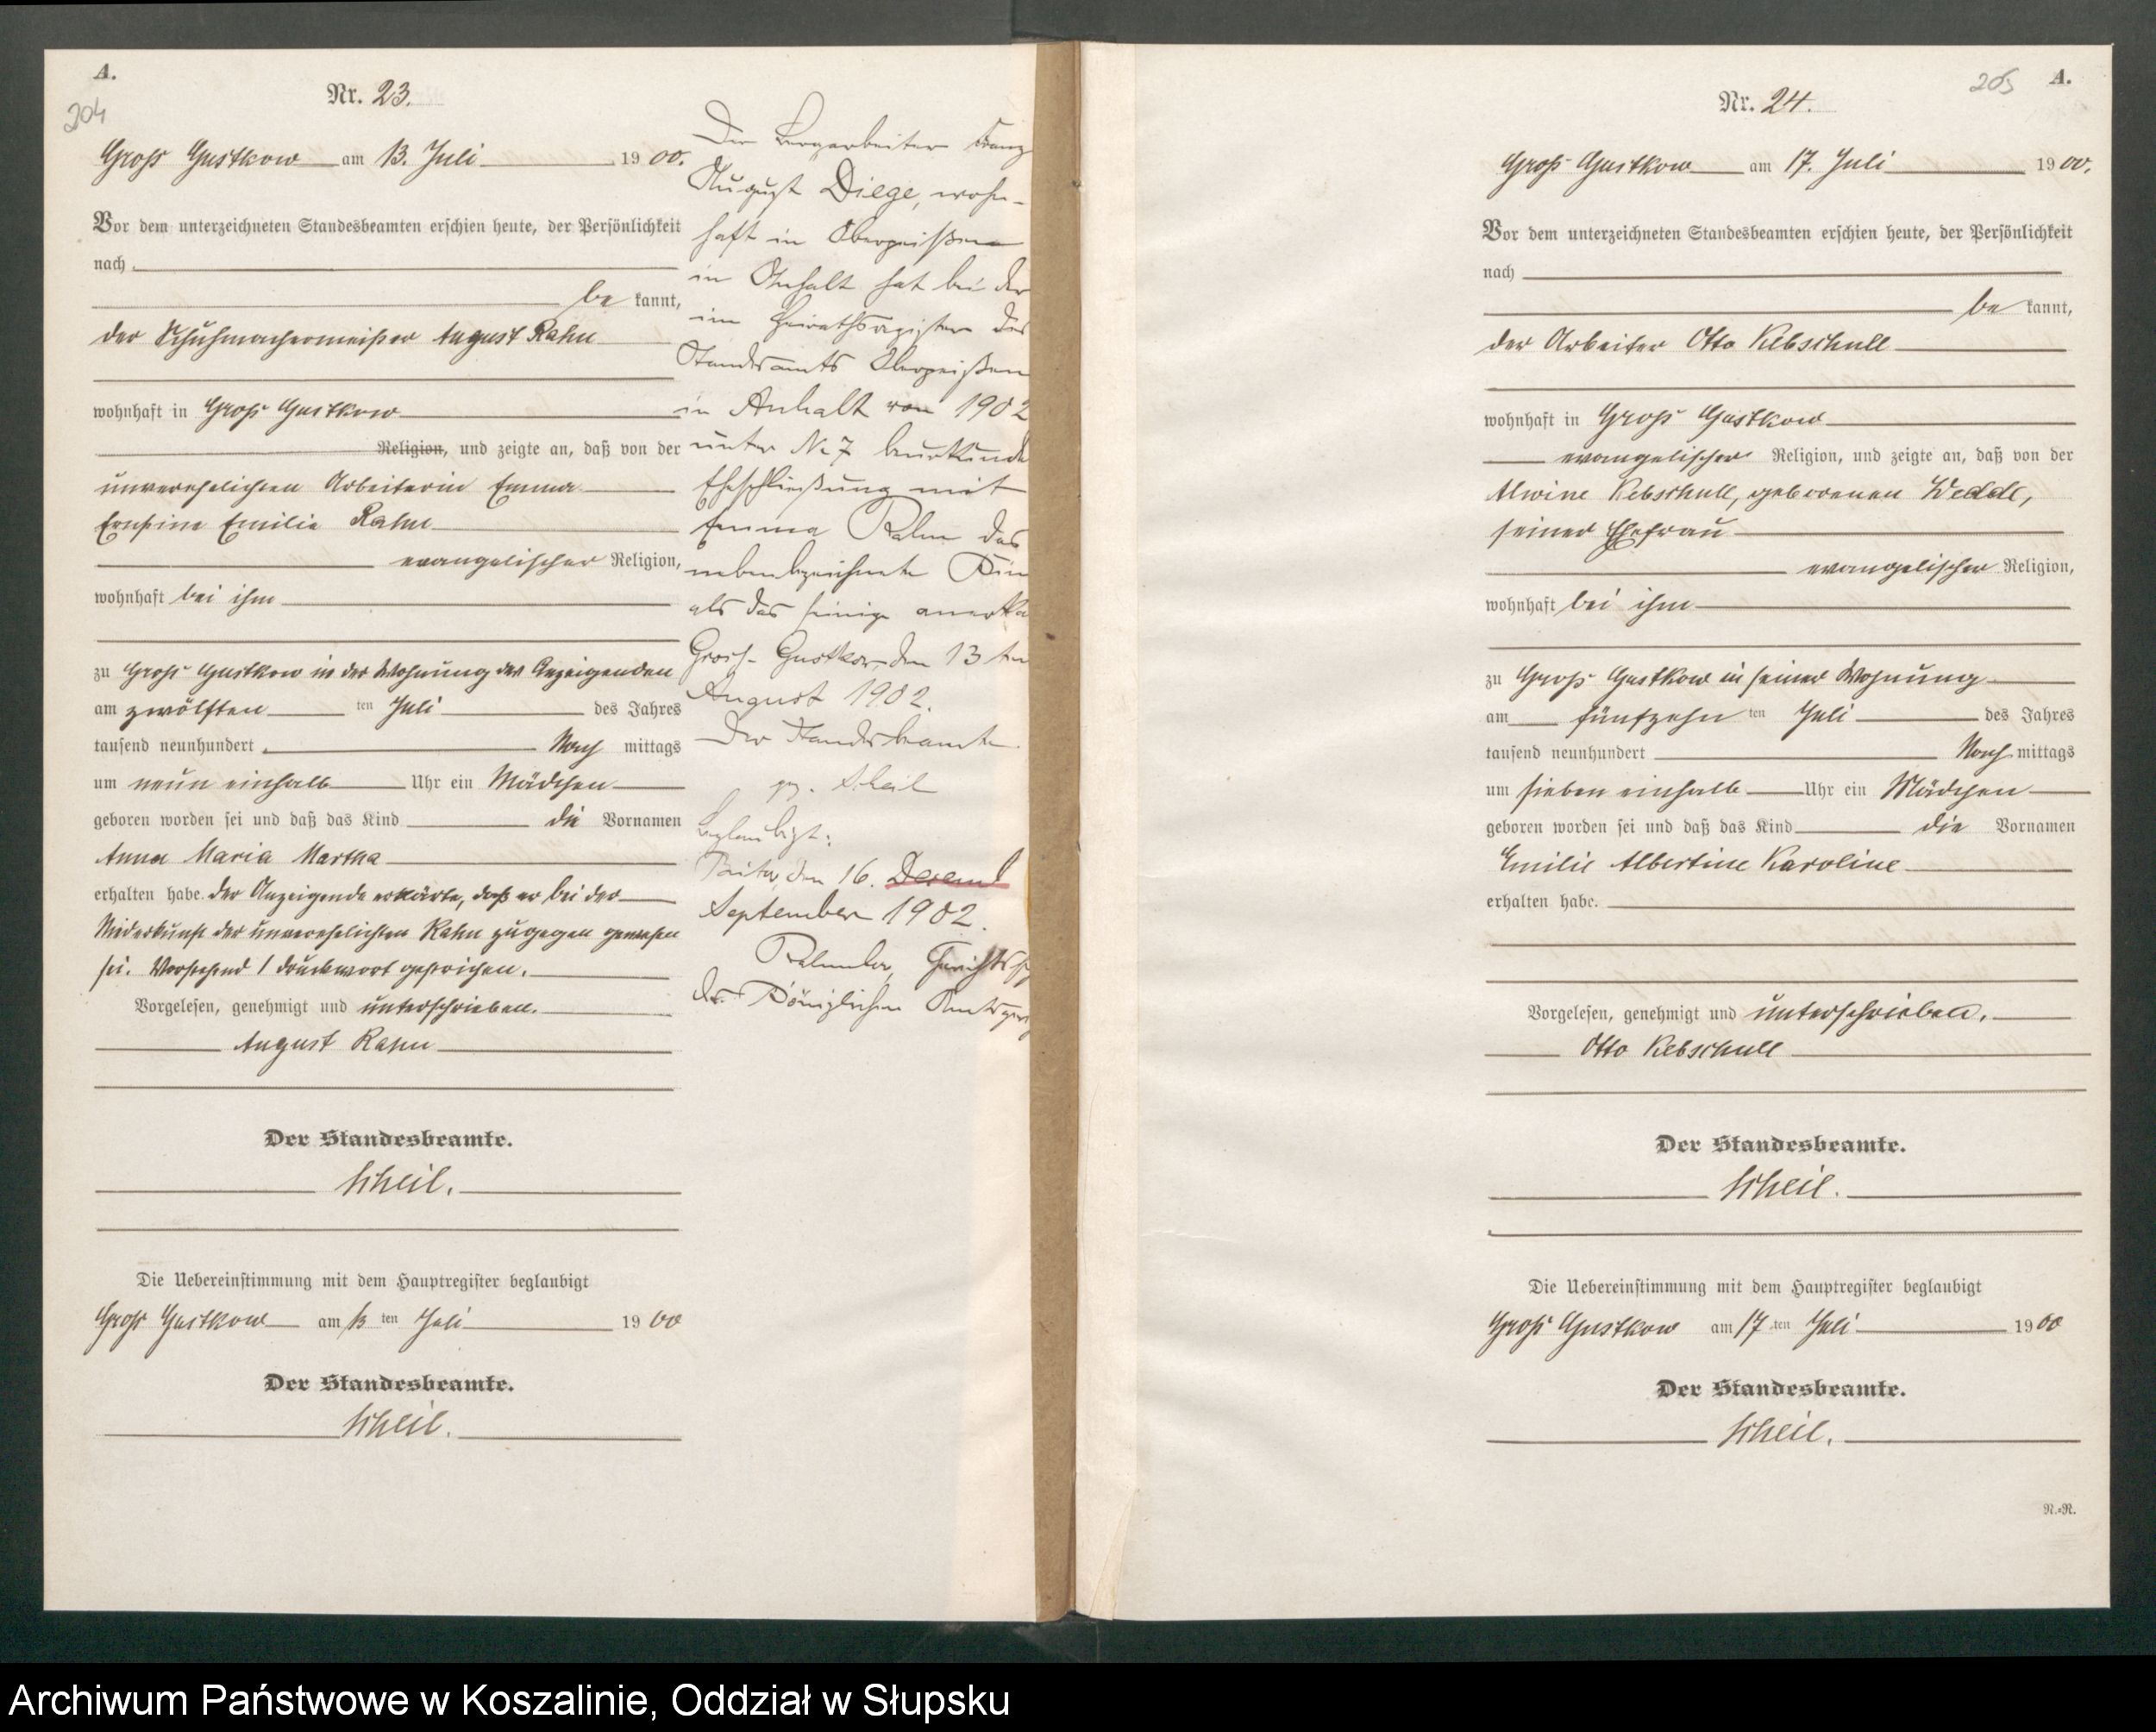 A.
204
Nr. 23.
Groß Gustkow am 13. Juli 1900.
Vor dem unterzeichneten Standesbeamten erschien heute, der Persönlichkeit
nach
be kannt,
der Schuhmachermeister August Rahn
wohnhaft in Groß Gustkow
Religion, und zeigte an, daß von der
unverehelichten Arbeiterin Emma
Ernstine Emilie Rahn
evangelischer Religion,
wohnhaft bei ihm
zu Groß Gustkow in der Wohnung des Anzeigenden
am zwölften ten Juli des Jahres
tausend neunhundert Nach mittags
um neun einhalb Uhr ein Mädchen
geboren worden sei und daß das Kind die Vornamen
Anna Maria Martha
erhalten habe. Der Anzeigende erklärte, daß er bei der
Niederkunft der unverehelichten Rahn zugegen gewesen
sei. Vorstehend 1 Druckwort gestrichen.
Vorgelesen, genehmigt und unterschrieben.
August Rahn
Der Standesbeamte.
Scheil.
Die Uebereinstimmung mit dem Hauptregister beglaubigt
Groß Gustkow am 13 ten Juli 1900
Der Standesbeamte.
Scheil.
Der Bergarbeiter Franz
August Diege, wohn-
haft in Oberpeißen
in Anhalt hat bei der
im Heirathsregister des
Standesamts Oberpeißen
in Anhalt von 1902
unter No 7 beurkunde
Eheschließung mit
Emma Rahn das
nebenbezeichnete Kin
als das seinige anerka
Gross-Gustkow den 13 ten
August 1902.
Der Standesbeamte.
gz. Scheil
Beglaubigt:
den 16. Dezemb
September 1902.
Gerichts
des Königlichen Amtsger
205 A.
Nr. 24.
Groß Gustkow am 17. Juli 1900.
Vor dem unterzeichneten Standesbeamten erschien heute, der Persönlichkeit
nach
be kannt,
der Arbeiter Otto Kebschull
wohnhaft in Groß Gustkow
evangelischer Religion, und zeigte an, daß von der
Alwine Kebschull, geborenen Wedde,
seiner Ehefrau
evangelischer Religion,
wohnhaft bei ihm
zu Groß Gustkow in seiner Wohnung
am fünfzehn ten Juli des Jahres
tausend neunhundert Nach mittags
um sieben einhalb Uhr ein Mädchen
geboren worden sei und daß das Kind die Vornamen
Emilie Albertine Karoline
erhalten habe.
Vorgelesen, genehmigt und unterschrieben.
Otto Kebschull
Der Standesbeamte.
Scheil.
Die Uebereinstimmung mit dem Hauptregister beglaubigt
Groß Gustkow am 17 ten Juli 1900
Der Standesbeamte.
Scheil.
N.=N.
Archiwum Państwowe w Koszalinie, Oddział w Słupsku